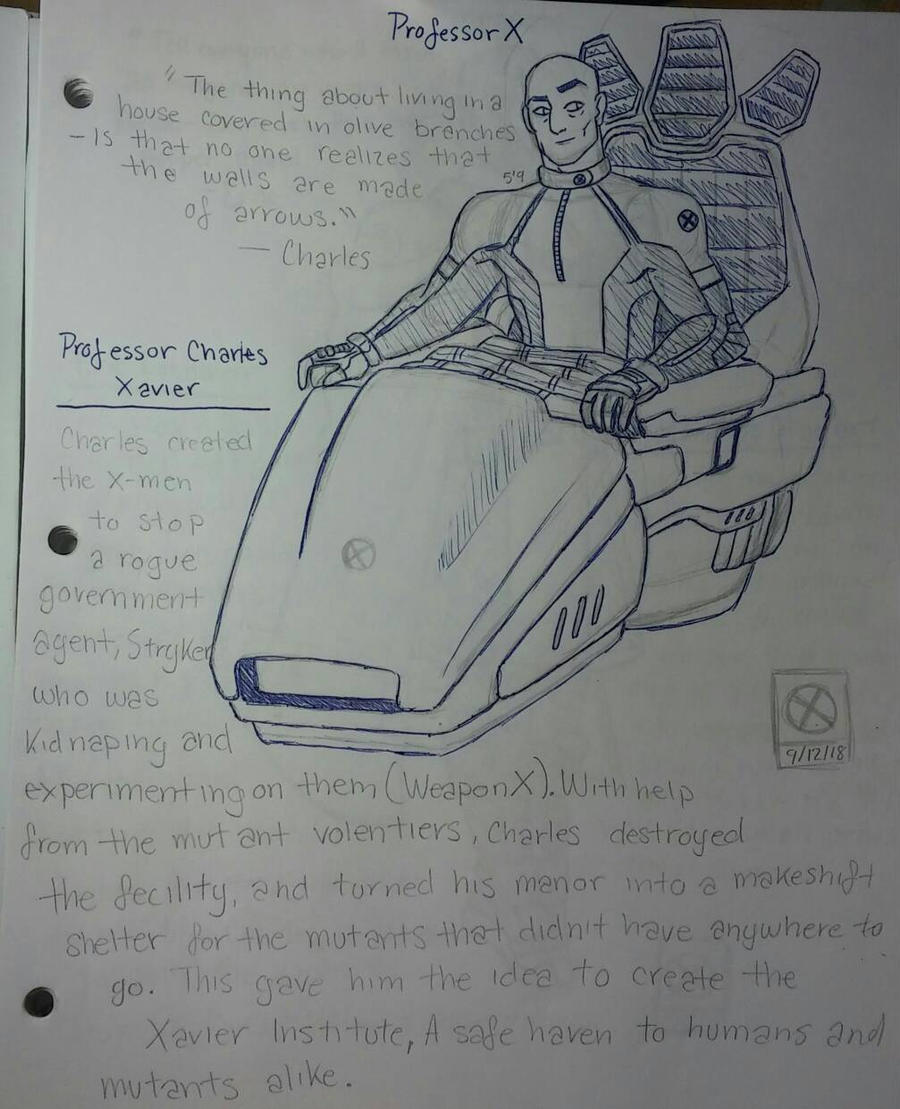 Professor X
"The thing about living in a
house covered in olive brenches
- Is that no one realizes that
the walls are made
of arrows."
— Charles
5'9
Professor Charles
Xavier
Charles created
the X-men
to stop
a rogue
government
agent, Stryker
who was
Kidnaping and
experimenting on them (Weapon X). With help
from the mutant volentiers, Charles destroyed
the fecility, and turned his manor into a makeshift
shelter for the mutants that didn't have anywhere to
go. This gave him the idea to create the
Xavier Institute, A safe haven to humans and
mutants alike.
9/12/18